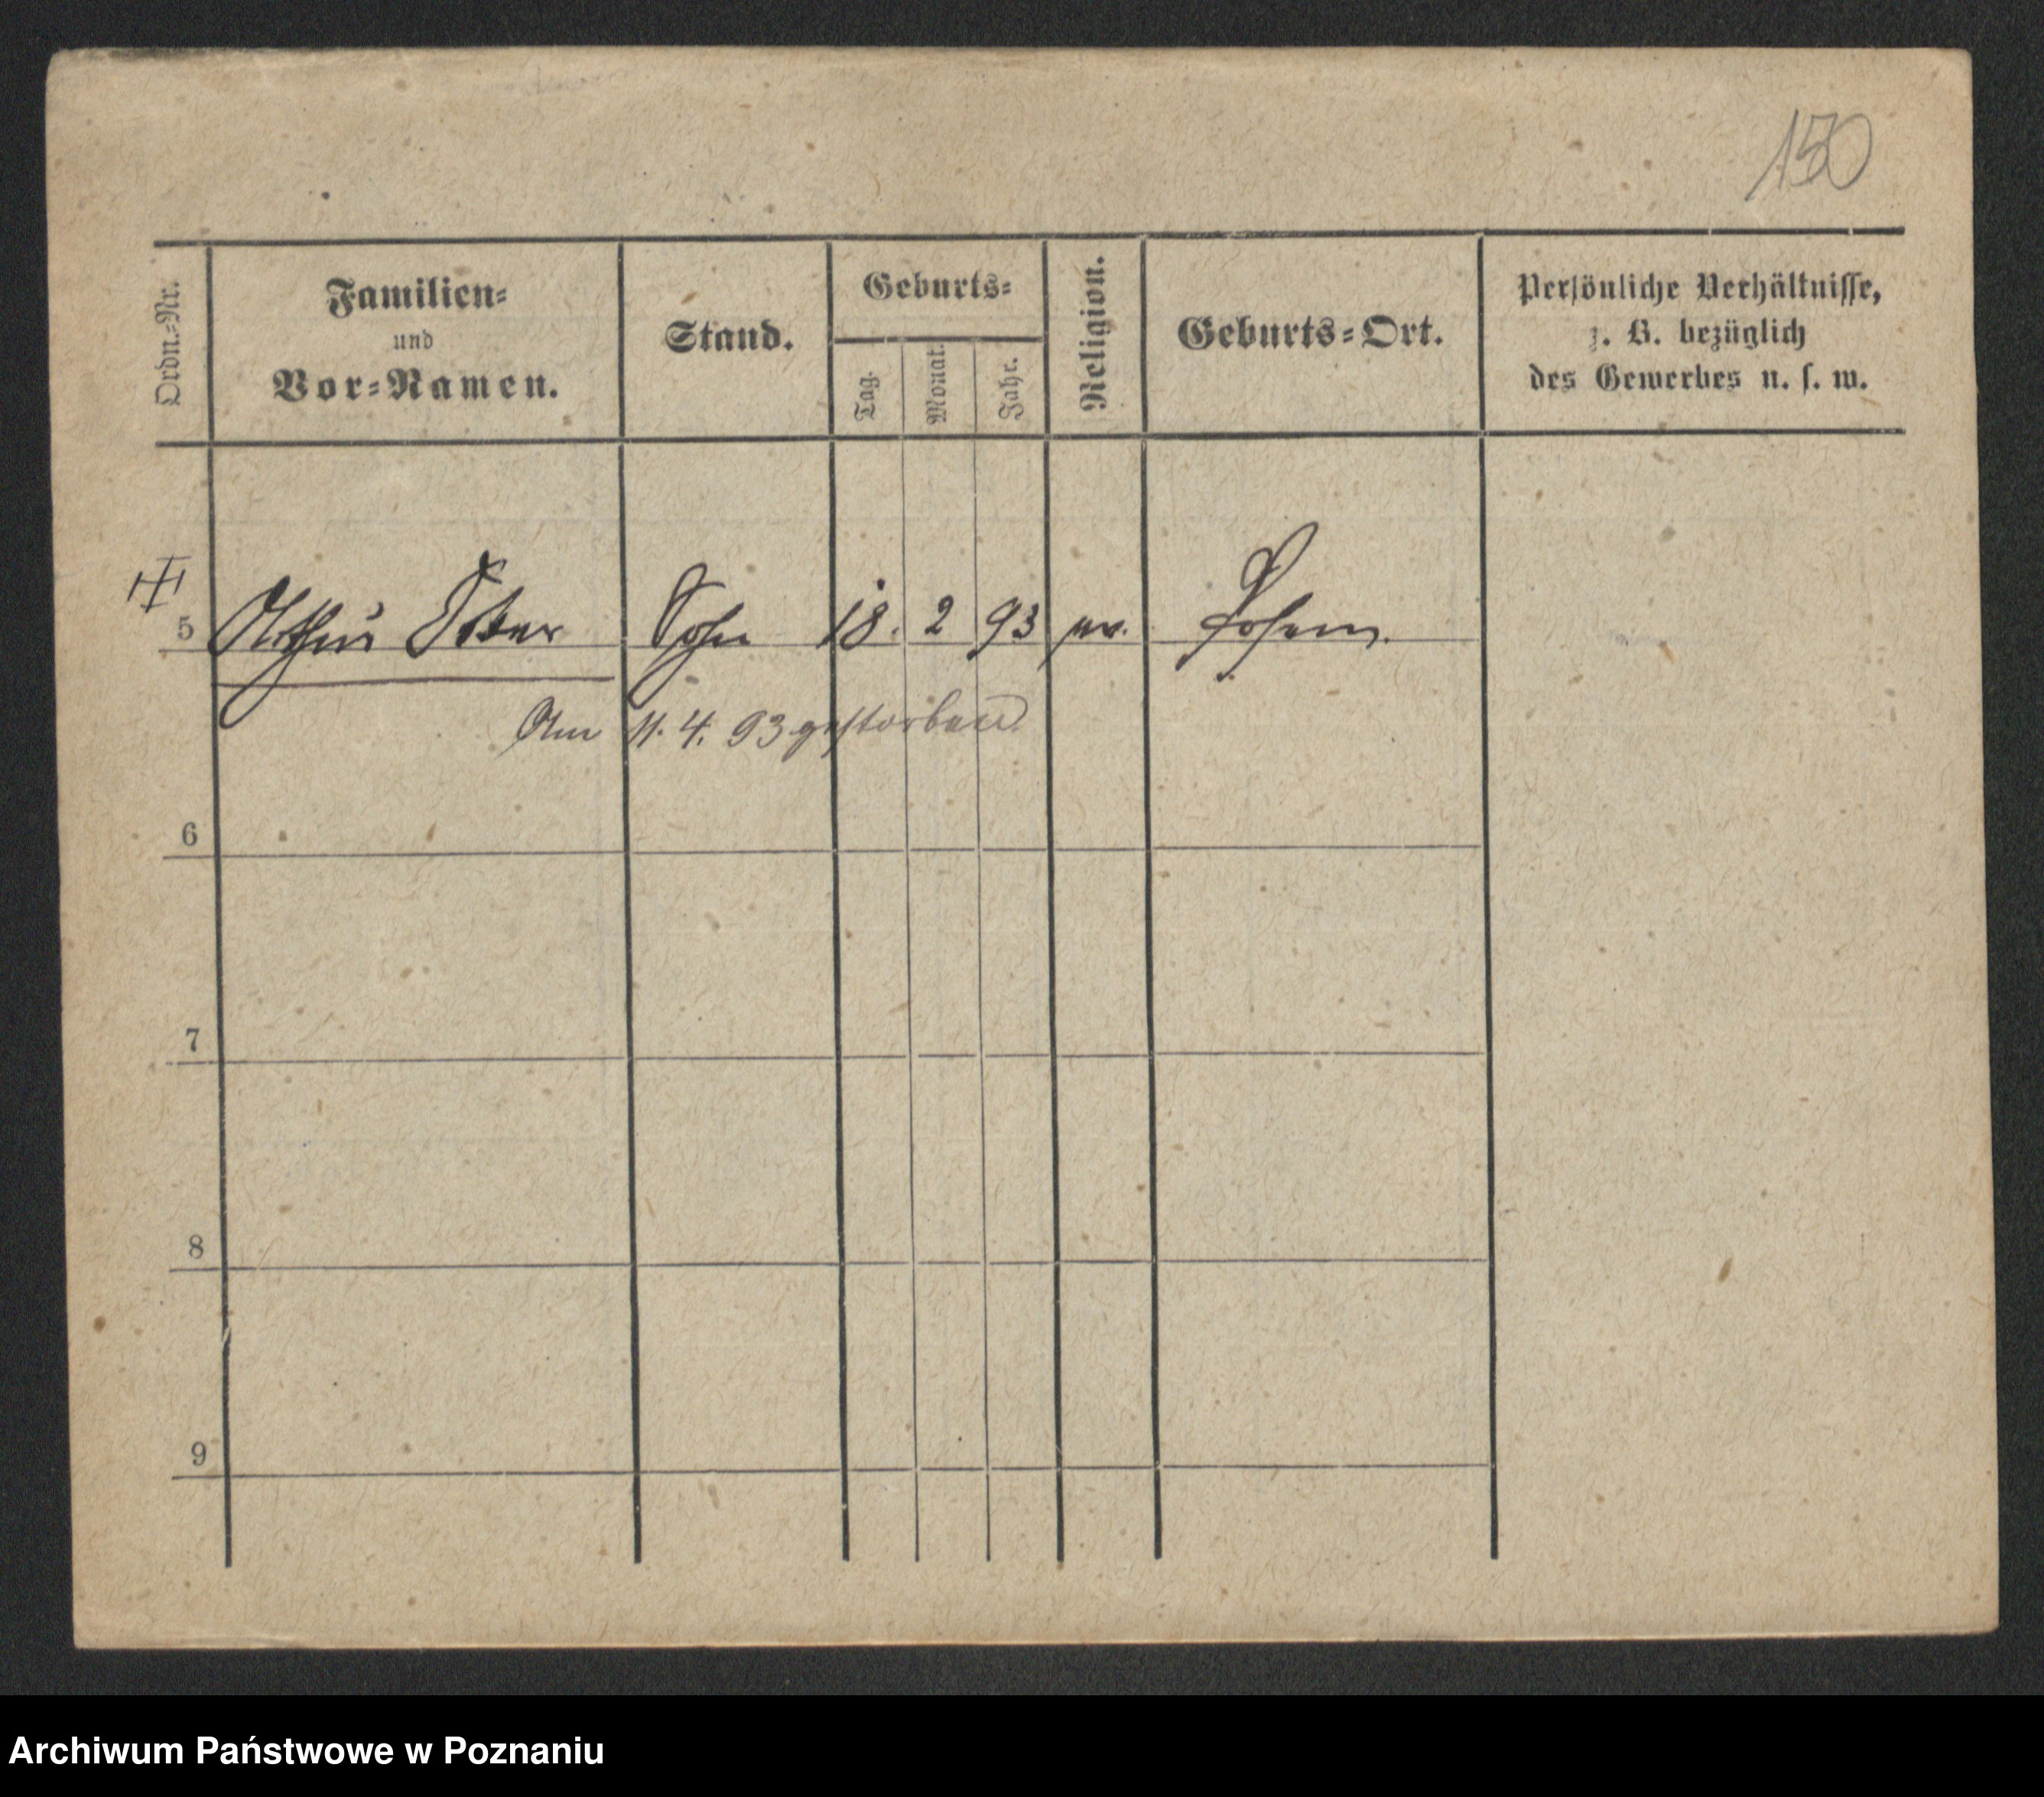 150
Ordn.-Nr.
Familien-
und
Vor-Namen.
Stand.
Geburts-
Tag.
Monat.
Jahr.
Religion.
Geburts-Ort.
Persönliche Verhältnisse,
z. B. bezüglich
des Gewerbes u. s. w.
5 Arthur Oskar Sohn 18. 2 93 Posen.
Am 11. 4. 93 gestorben
6
7
8
9
Archiwum Państwowe w Poznaniu